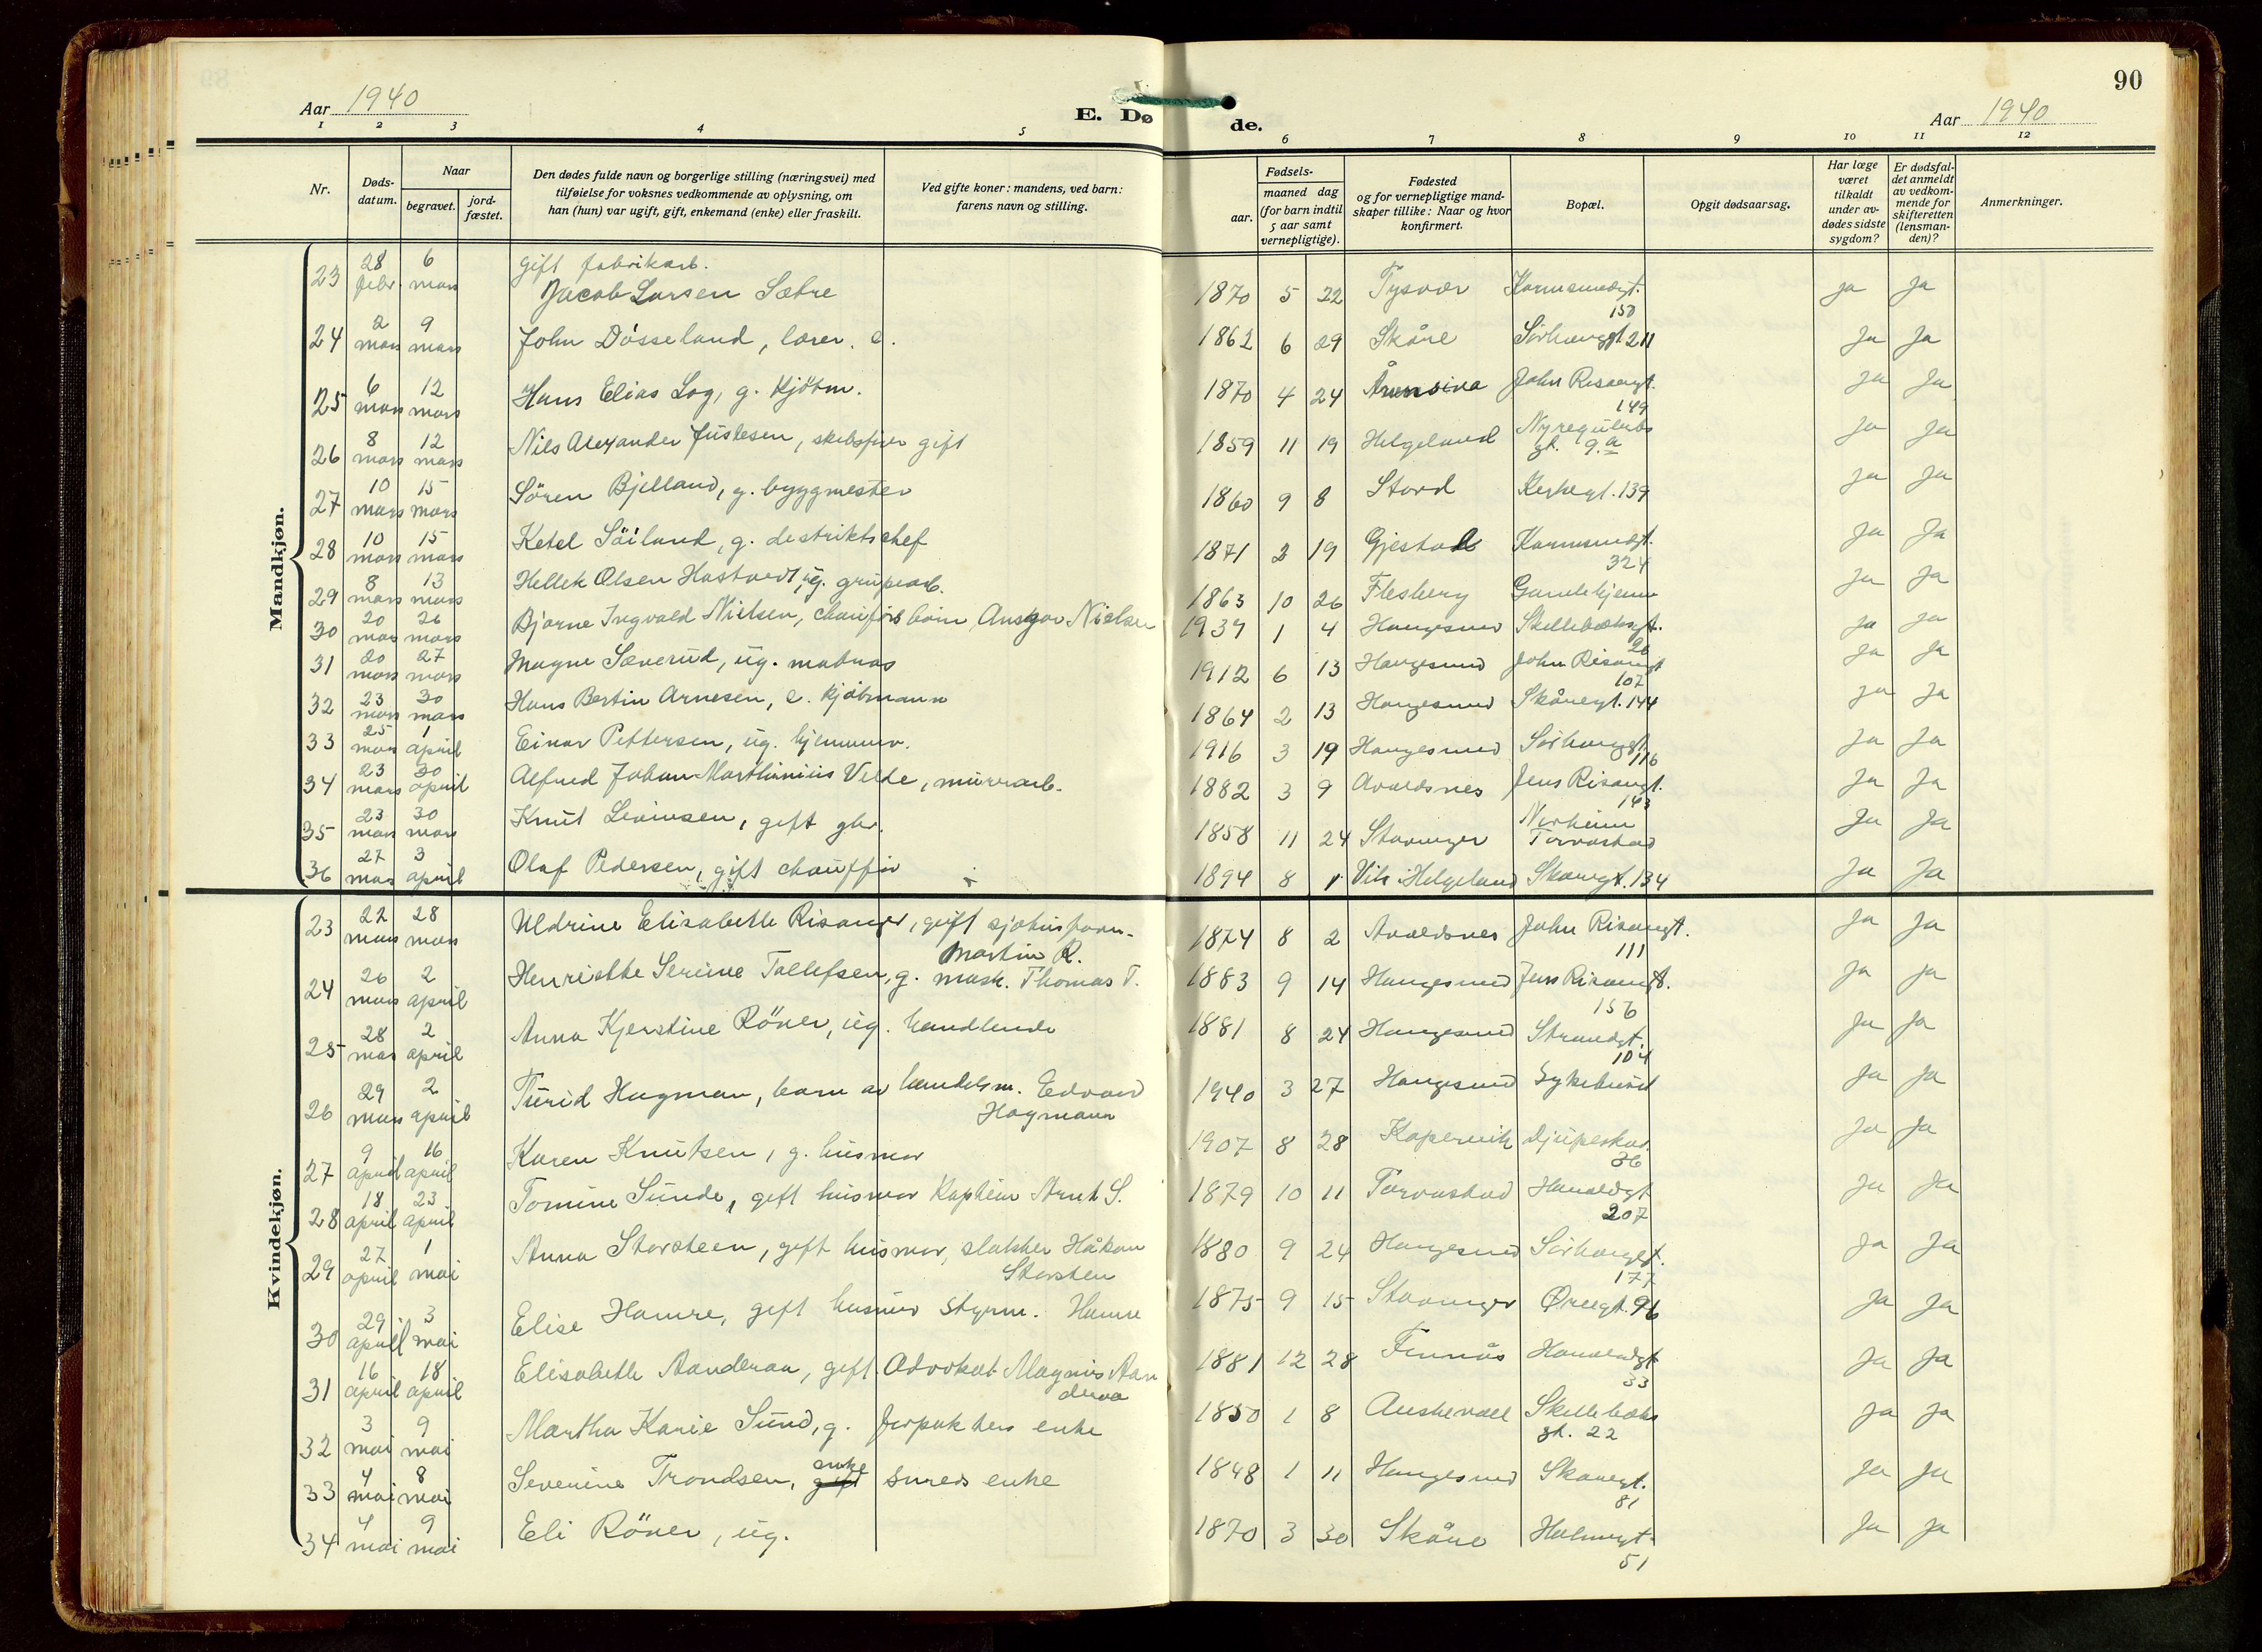 90
Aar 1940
E. Døde.
Aar 1940
1 2 3 4 5 6 7 8 9 10 11 12
Nr.
Døds-datum.
Naar
begravet.
jord-fæstet.
Den dødes fulde navn og borgerlige stilling (næringsvei) med
tilføielse for voksnes vedkommende av oplysning, om
han (hun) var ugift, gift, enkemand (enke) eller fraskilt.
Ved gifte koner: mandens, ved barn:
farens navn og stilling.
Fødsels-
aar.
maaned dag
(for barn indtil
5 aar samt
vernepligtige).
Fødested
og for vernepligtige mand-
skaper tillike: Naar og hvor
konfirmert.
Bopæl.
Opgit dødsaarsag.
Har læge
været
tilkaldt
under av-
dødes sidste
sygdom?
Er dødsfal-
det anmeldt
av vedkom-
mende for
skifteretten
(lensman-
den)?
Anmerkninger.
Mandkjøn.
23 28 febr. 6 mars gift fabrikarb. Jacob Larsen Sætre 1870 5 22 Tysvær Karmsundgt. 150 ja ja
24 2 mars 9 mars John Dösseland, lærer. e. 1862 6 29 Skåre Sörhauggt. 211 Ja Ja
25 6 mars 12 mars Hans Elias Log, g. kjöbm. 1870 4 24 John Risaangt. 149 Ja Ja
26 8 mars 12 mars Nils Alexander Justesen, skibsfører gift 1859 11 19 Helgeland gt. 9.a Ja Ja
27 10 mars 15 mars Sören Bjelland, g. byggmester 1860 9 8 Stord Kirkegt. 139 Ja Ja
28 10 mars 15 mars Ketel Söiland, g. destriktschef 1871 2 19 Gjestad Karmsundgt. 324 Ja Ja
29 8 mars 13 mars Hellek Olsen Hastvedt, ug. grubearb. 1863 10 26 Flesberg Gamlehjem Ja Ja
30 20 mars 26 mars Bjarne Ingvald Nielsen, chauførs barn Ansgar Nielsen 1939 1 4 Haugesund Skillebæksgt. 26 Ja Ja
31 20 mars 27 mars Magne Sæverud, ug. matros 1912 6 13 Haugesund John Risangt 107 Ja Ja
32 23 mars 30 mars Hans Bertin Arnesen, e. kjöbmann 1864 2 13 Haugesund Skåregt. 144 Ja Ja
33 25 mars 1 april Einar Pettersen, ug. hjemmev. 1916 3 19 Haugesund Sörhauggt 116 Ja Ja
34 23 mars 30 april Alfred Johan Marthinius Velde, murerarb. 1882 3 9 Avaldsnes Jens Risangt. 143 Ja Ja
35 23 mars 30 mars Knut Levinsen, gift gbr. 1858 11 24 Stavanger Norheim Torvastad Ja Ja
36 27 mars 3 april Olaf Pedersen, gift chauffør 1894 8 1 Vik i Helgeland Skaregt. 134 Ja Ja
Kvindekjøn.
23 22 mars 28 mars Uldrine Elisabeth Risanger, gift sjøhusform. Martin R. 1874 8 2 Avaldsnes John Risangt. 111 Ja Ja
24 26 mars 2 april Henriette Serine Tollefsen, g. mask. Thomas T. 1883 9 14 Haugesund Jens Risangt. 156 Ja Ja
25 28 mars 2 april Anna Kjerstine Röver, ug. handlende 1881 8 24 Haugesund Strandgt. 104 Ja Ja
26 29 mars 2 april Turid Hagman, barn av handelsm. Edvard Hagmann 1940 3 27 Haugesund Sykehuset Ja Ja
27 9 april 16 april Karen Knutsen, g. husmor 1907 8 28 Kopervik Djupeskar. 36 Ja Ja
28 18 april 23 april Tomine Sunde, gift husmor Kaptein Arnt S. 1879 10 11 Torvastad Haraldgt 207 Ja Ja
29 27 april 1 mai Anna Storsteen, gift husmor, slakter Håkon Storsten 1880 9 24 Haugesund Sörhauggt. 177 Ja Ja
30 29 april 3 mai Elise Hamre, gift husmor styrm. Hamre 1875 9 15 Stavanger Öregt. 96 Ja Ja
31 16 april 18 april Elisabeth Aanderaa, gift. Advokat Magnus Aanderaa 1881 12 28 Finnås Haraldgt 33 Ja Ja
32 3 mai 9 mai Martha Karie Sund, g. forpakters enke 1850 1 8 Austevoll Skillebæks gt. 22 Ja Ja
33 4 mai 8 mai Severine Trondsen, gift enke smeds enke 1848 1 11 Haugesund Skaregt. 81 Ja Ja
34 4 mai 9 mai Eli Röver, ug. 1870 3 30 Skåre Holmegt. 51 Ja Ja